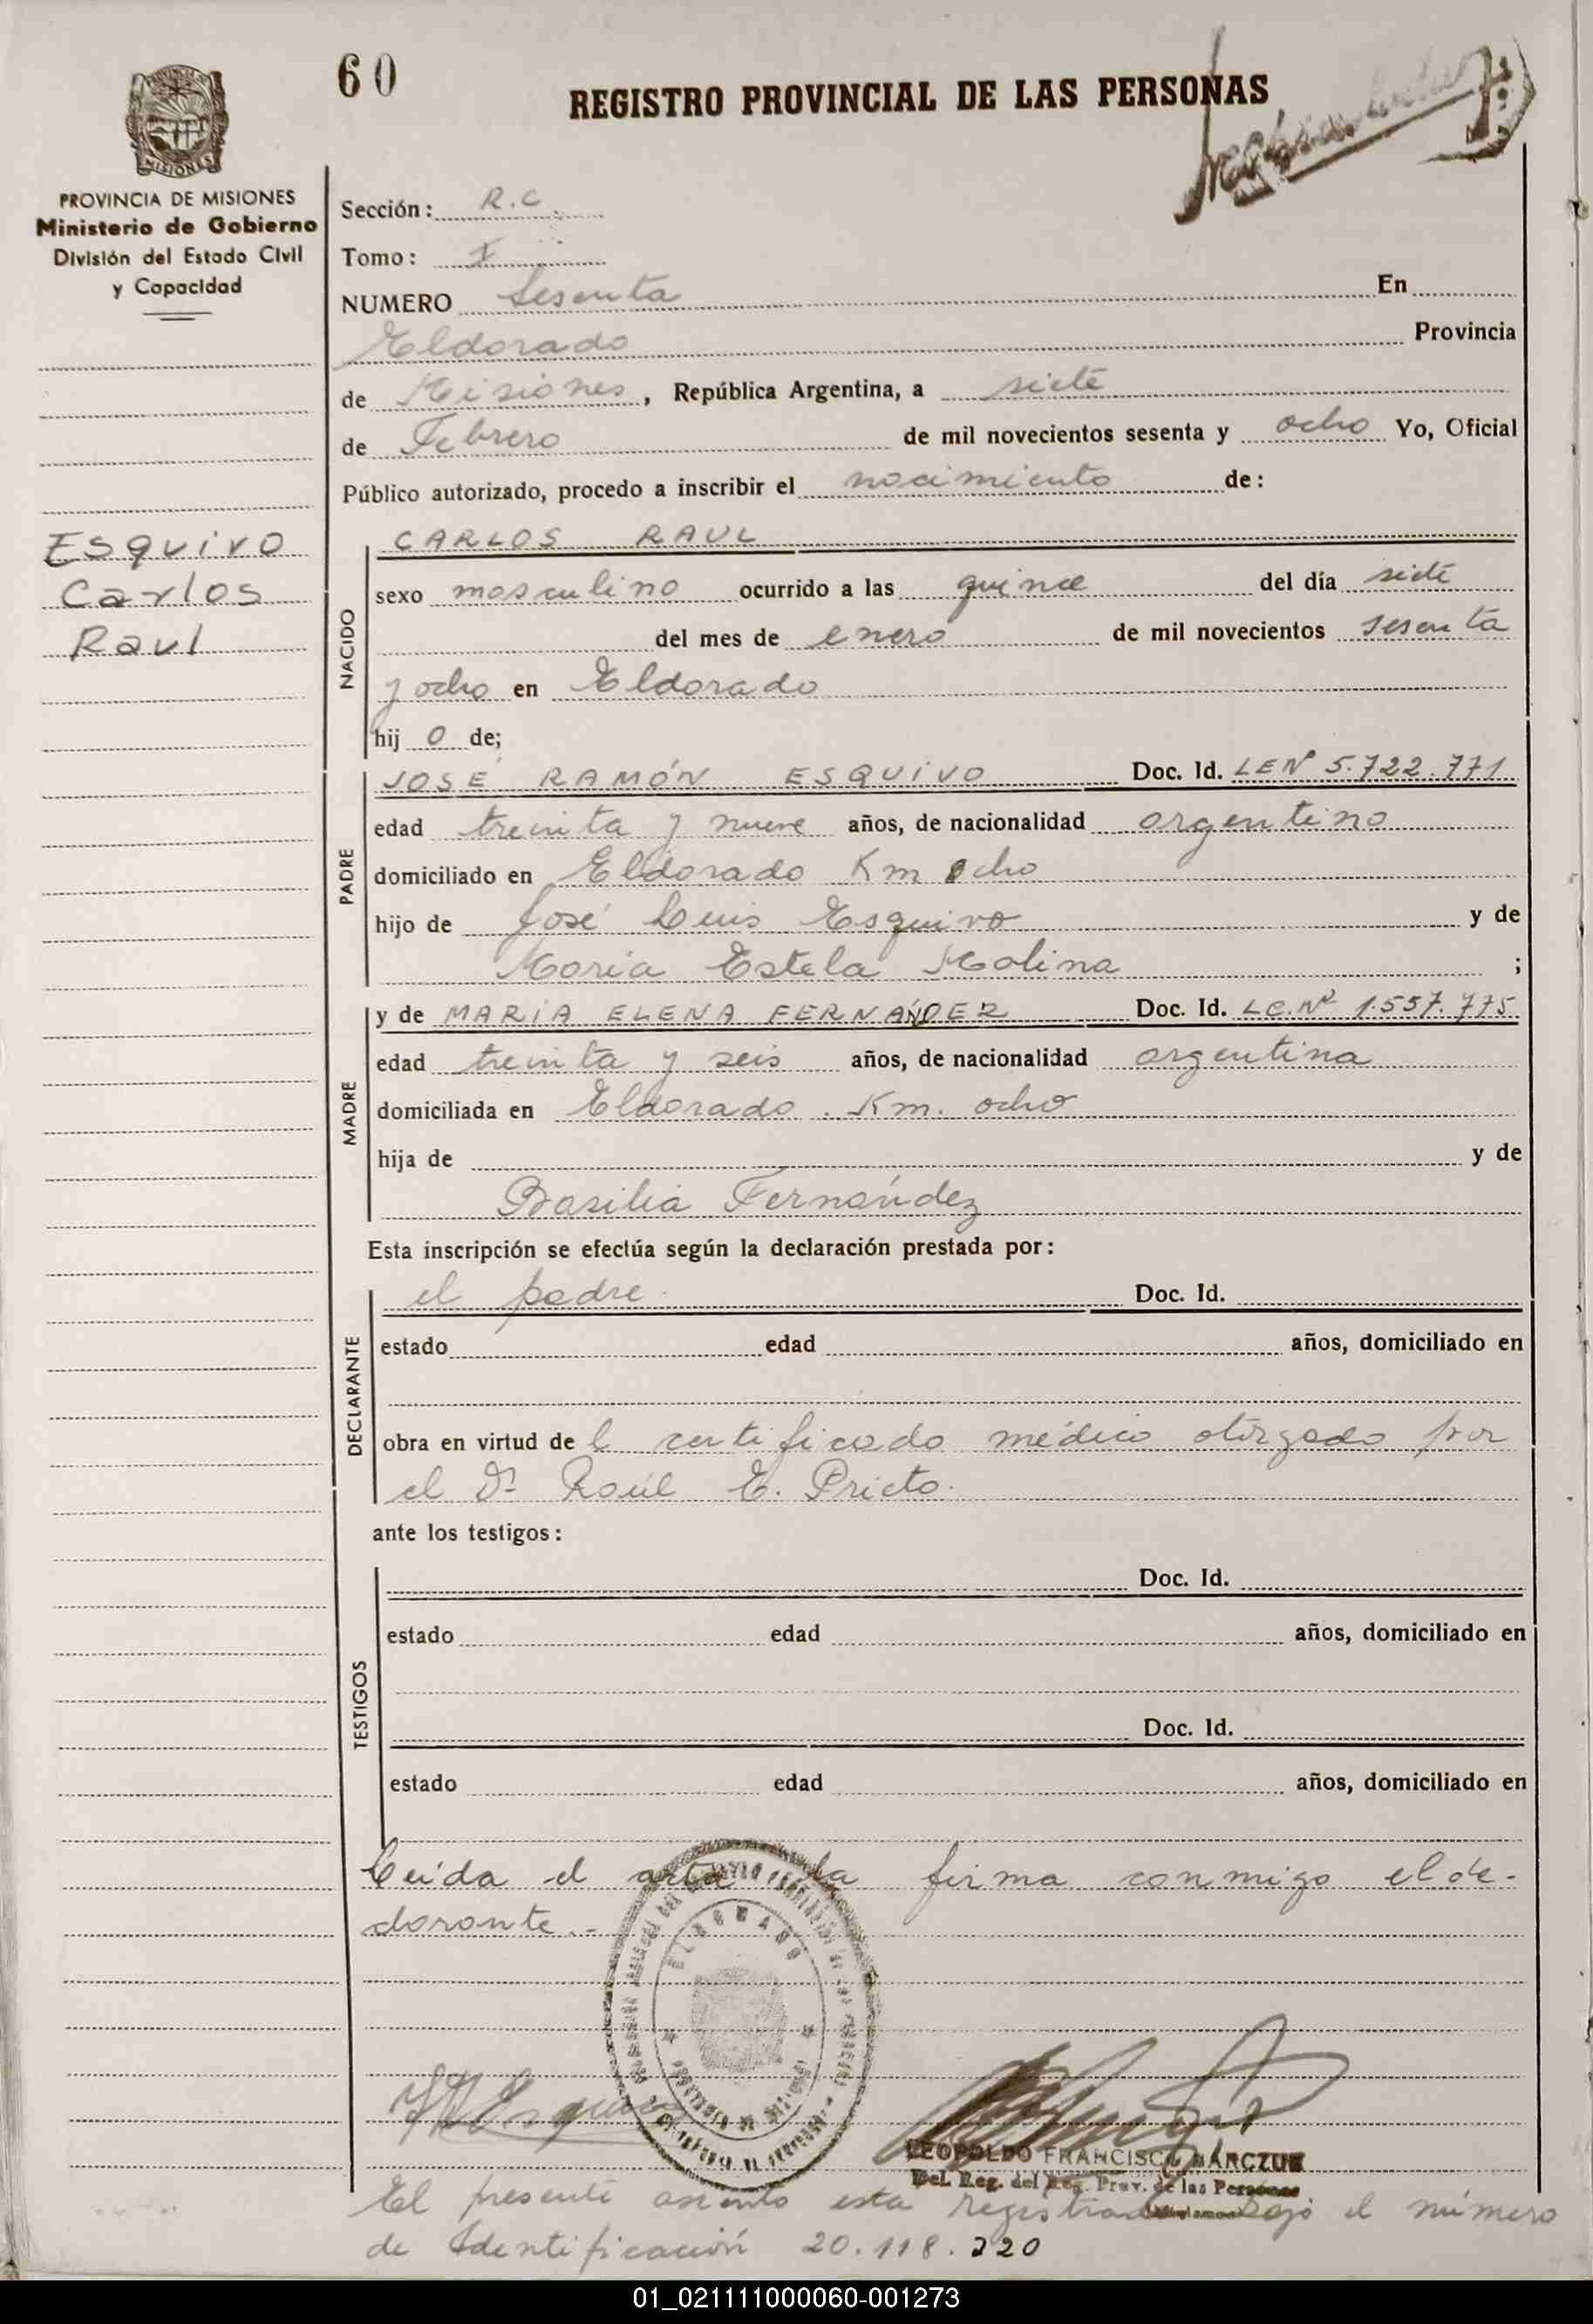 60
REGISTRO PROVINCIAL DE LAS PERSONAS
MISIONES
PROVINCIA DE MISIONES
Ministerio de Gobierno
División del Estado Civil
y Capacidad
Esquivo
Carlos
Raul
Sección: R.C
Tomo: I
NUMERO Sesenta En
Eldorado Provincia
de Misiones, República Argentina, a siete
de Febrero de mil novecientos sesenta y ocho Yo, Oficial
Público autorizado, procedo a inscribir el nacimiento de:
NACIDO
CARLOS RAUL
sexo masculino ocurrido a las quince del día siete
del mes de enero de mil novecientos sesenta
y ocho en Eldorado
hij o de;
PADRE
JOSÉ RAMÓN ESQUIVO Doc. Id. LENº 5.722.771
edad treinta y nueve años, de nacionalidad argentino
domiciliado en Eldorado Km ocho
hijo de José Luis Esquivo y de
Maria Estela Molina ;
MADRE
y de MARÍA ELENA FERNÁNDEZ Doc. Id. LC.Nº 1.557.775
edad treinta y seis años, de nacionalidad argentina
domiciliada en Eldorado. Km. ocho
hija de y de
Basilia Fernández
Esta inscripción se efectúa según la declaración prestada por:
DECLARANTE
el padre. Doc. Id.
estado edad años, domiciliado en
obra en virtud de l certificado médico otorgado por
el Dr Raúl E. Prieto.
ante los testigos:
TESTIGOS
Doc. Id.
estado edad años, domiciliado en
Doc. Id.
estado edad años, domiciliado en
Leída el acta, la firma conmigo el de-
clarante.-
ELDORADO
LEOPOLDO FRANCISCO MARCZUK
Del. Reg. del Reg. Prov. de las Personas
El presente asiento esta registrado bajo el número
de Identificación 20.118.220
01_021111000060-001273